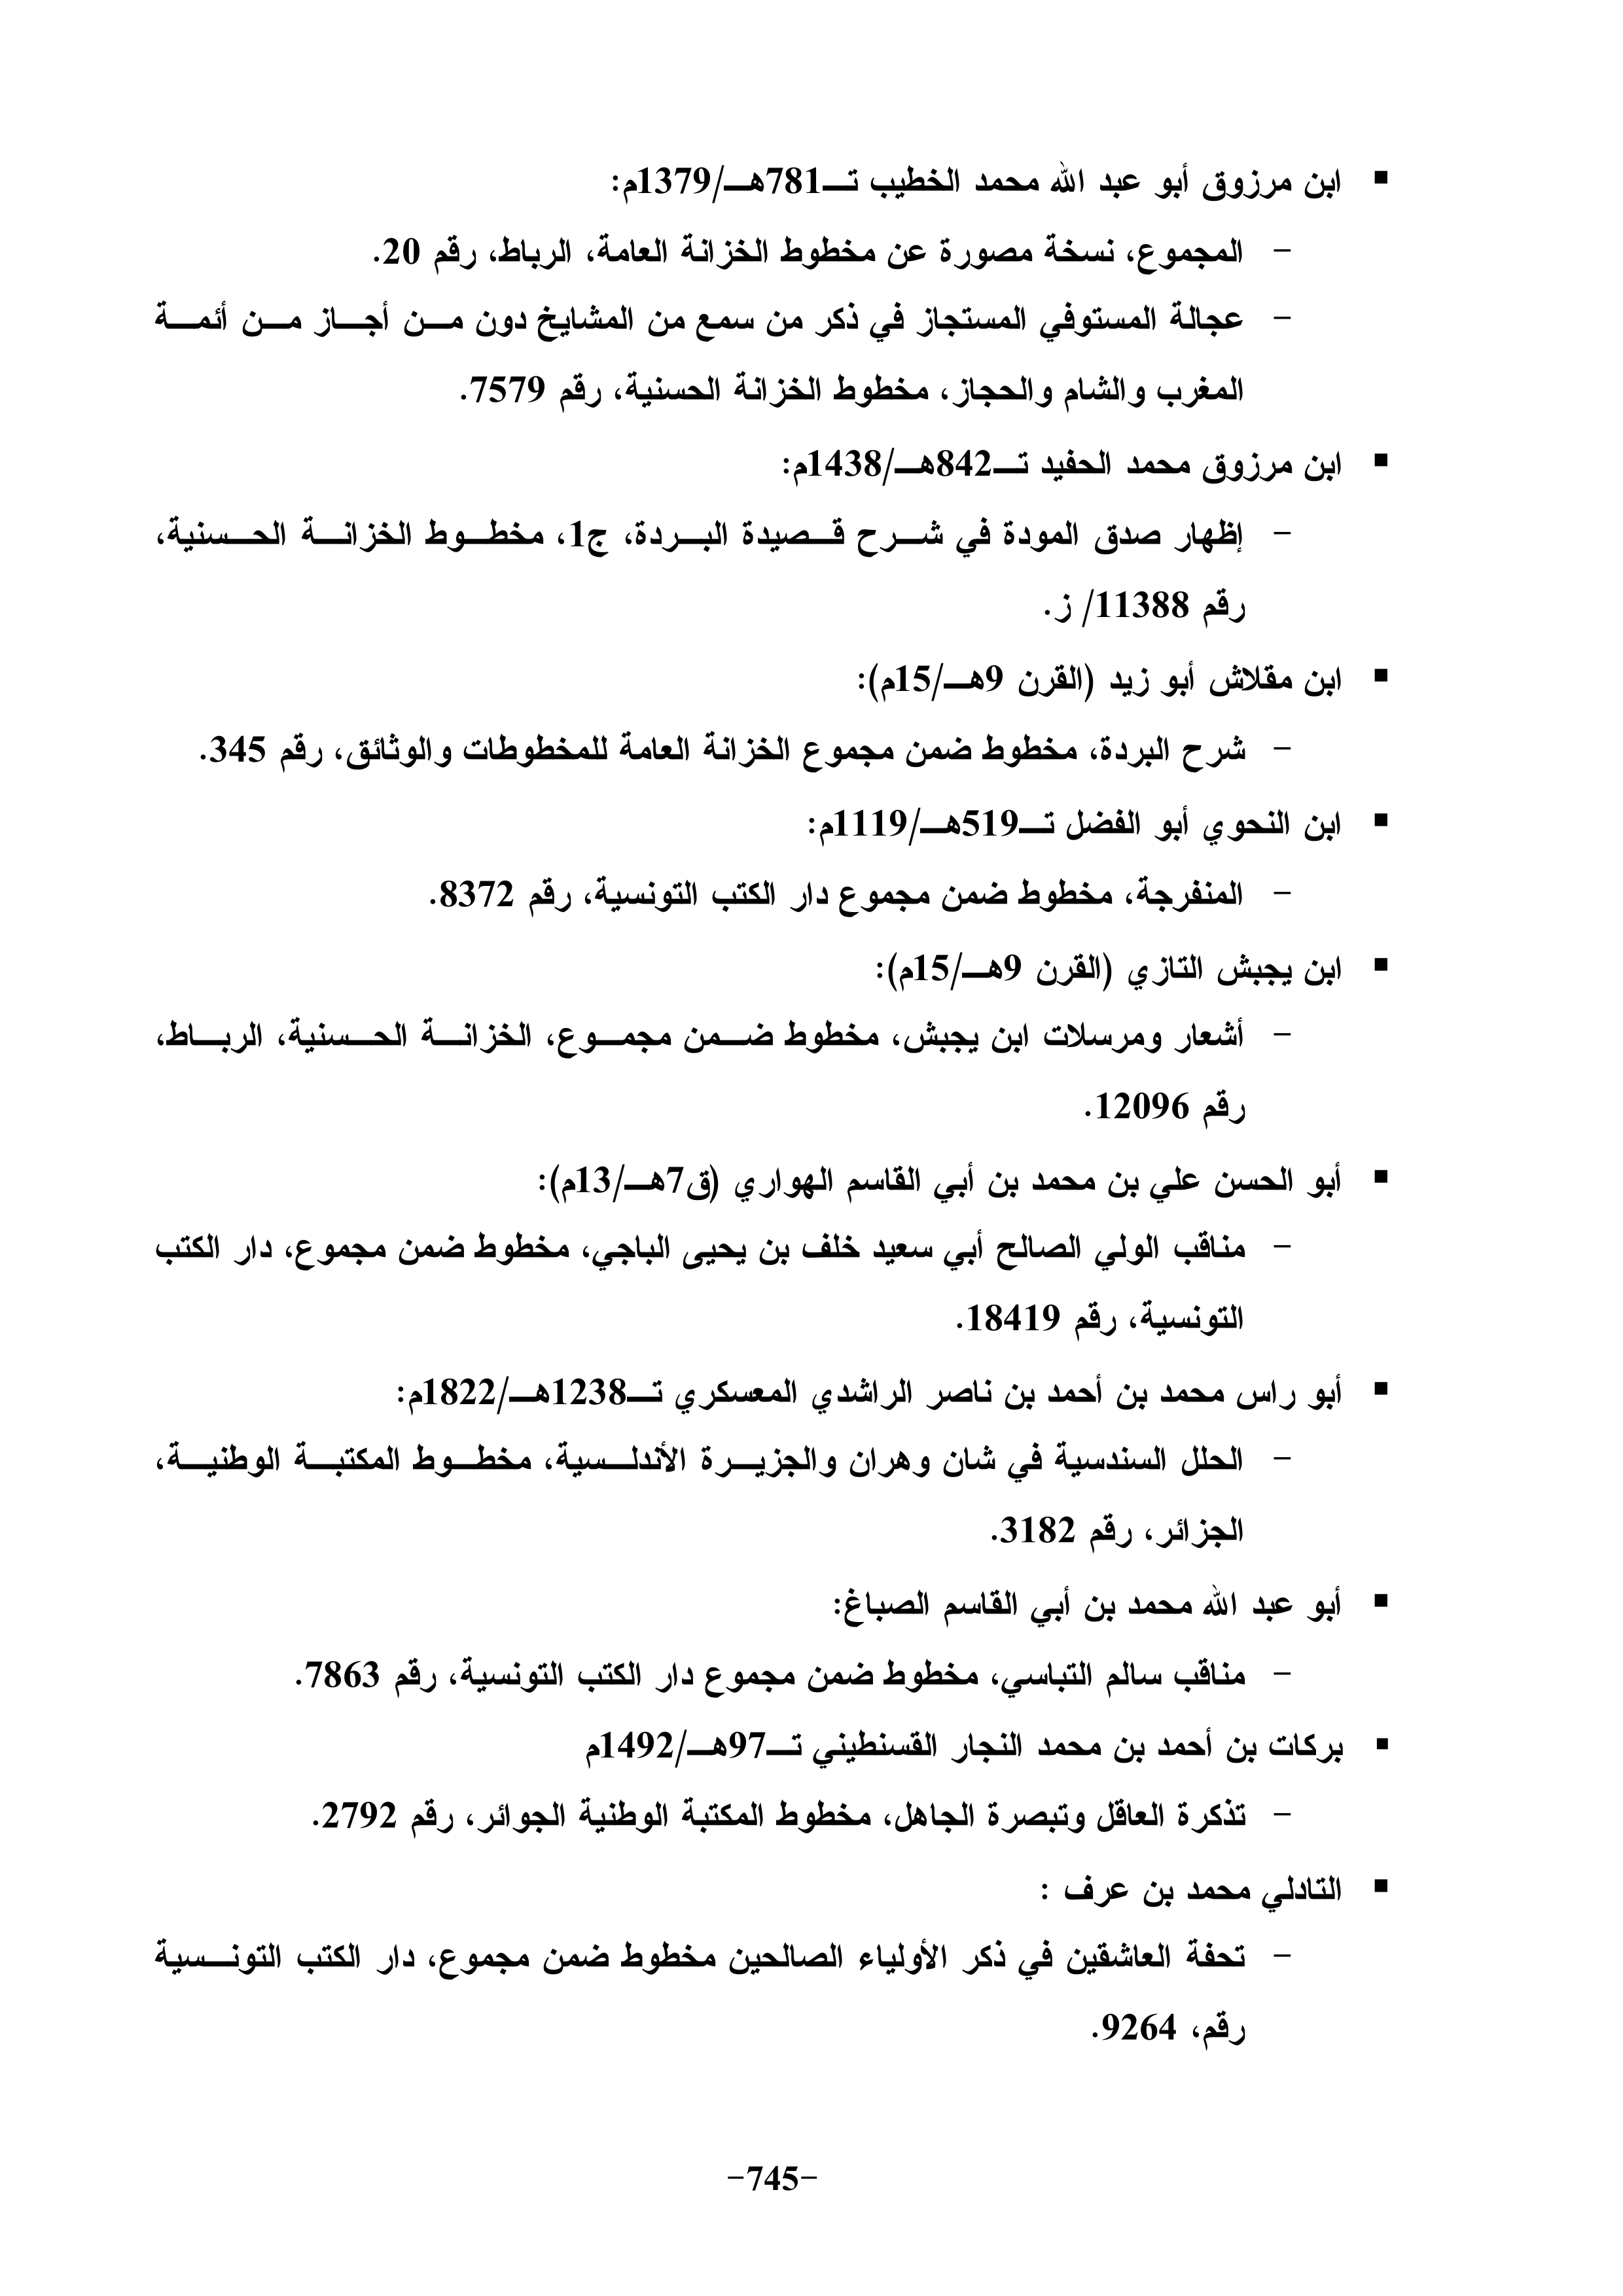 ▪ ابن مرزوق أبو عبد الله محمد الخطيب تـ781هـ/1379م:
- المجموع، نسخة مصورة عن مخطوط الخزانة العامة، الرباط، رقم 20.
- عجالة المستوفي المستجاز في ذكر من سمع من المشايخ دون من أجاز من أئمة
المغرب والشام والحجاز، مخطوط الخزانة الحسنية، رقم 7579.
▪ ابن مرزوق محمد الحفيد تـ842هـ/1438م:
- إظهار صدق المودة في شرح قصيدة البردة، ج1، مخطوط الخزانة الحسنية،
رقم 11388/ ز.
▪ ابن مقلاش أبو زيد (القرن 9هـ/15م):
- شرح البردة، مخطوط ضمن مجموع الخزانة العامة للمخطوطات والوثائق، رقم 345.
▪ ابن النحوي أبو الفضل تـ519هـ/1119م:
- المنفرجة، مخطوط ضمن مجموع دار الكتب التونسية، رقم 8372.
▪ ابن يجبش التازي (القرن 9هـ/15م):
- أشعار ومرسلات ابن يجبش، مخطوط ضمن مجموع، الخزانة الحسنية، الرباط،
رقم 12096.
▪ أبو الحسن علي بن محمد بن أبي القاسم الهواري (ق7هـ/13م):
- مناقب الولي الصالح أبي سعيد خلف بن يحيى الباجي، مخطوط ضمن مجموع، دار الكتب
التونسية، رقم 18419.
▪ أبو راس محمد بن أحمد بن ناصر الراشدي المعسكري تـ1238هـ/1822م:
- الحلل السندسية في شان وهران والجزيرة الأندلسية، مخطوط المكتبة الوطنية،
الجزائر، رقم 3182.
▪ أبو عبد الله محمد بن أبي القاسم الصباغ:
- مناقب سالم التباسي، مخطوط ضمن مجموع دار الكتب التونسية، رقم 7863.
▪ بركات بن أحمد بن محمد النجار القسنطيني تـ97هـ/1492م
- تذكرة العاقل وتبصرة الجاهل، مخطوط المكتبة الوطنية الجوائر، رقم 2792.
▪ التادلي محمد بن عرف :
- تحفة العاشقين في ذكر الأولياء الصالحين مخطوط ضمن مجموع، دار الكتب التونسية
رقم، 9264.
-745-